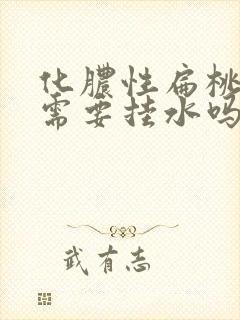 化脓性扁桃
需要挂水吗
武有志